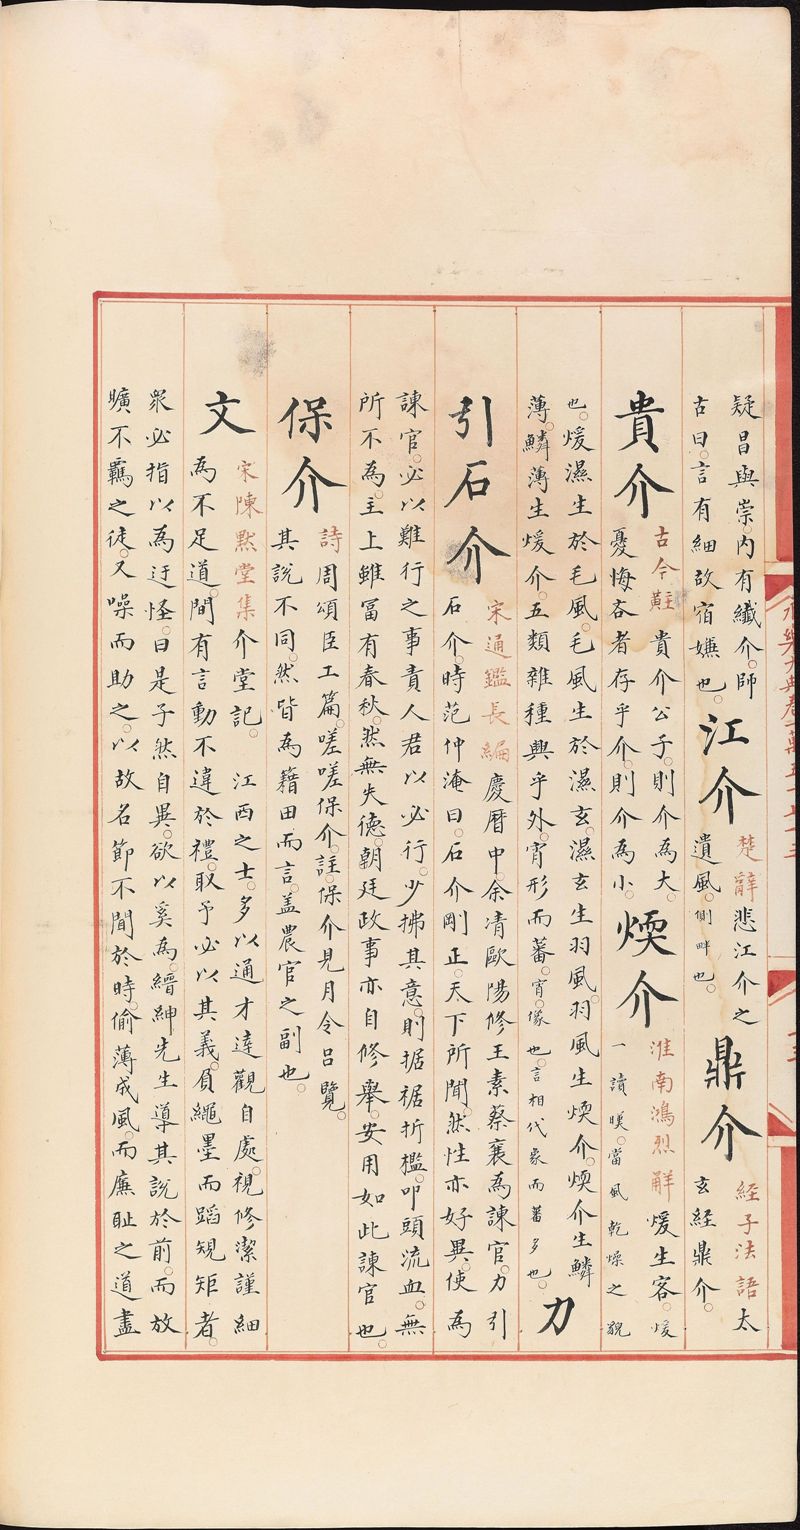 永樂大典卷一萬五千七十三
疑昌與崇。内有纖介。師
古曰。言有細故宿嫌也。
江介
楚辭悲江介之
遺風。側畔也。
鼎介
經子法語太
玄經鼎介。
貴介
古今註貴介公子。則介為大。
憂悔吝者存乎介。則介為小。
煗介
淮南鴻烈解煖生客。煖
一讀暵。當風乾燥之貌
也。煖濕生於毛風。毛風生於濕玄。濕玄生羽風。羽風生煗介。煗介生鱗
薄。鱗薄生煖介。五類雜種興乎外。宵形而蕃。宵。像也。言相代象而蕃多也。
力
引石介
宋通鑑長編慶曆中。余凊歐陽修王素蔡襄為諫官。力引
石介。時范仲淹曰。石介剛正。天下所聞。然性亦好異。使為
諫官。必以難行之事責人君以必行。少拂其意。則据裾折檻。叩頭流血。無
所不為。主上雖冨有春秋。然無失德。朝廷政事亦自修舉。安用如此諫官也。
保介
詩周頌臣工篇。嗟嗟保介。註。保介見月令吕覽。
其說不同。然皆為籍田而言。盖農官之副也。
文
宋陳黙堂集介堂記。江西之士。多以通才逹觀自處。視修潔謹細
為不足道。間有言動不違於禮。取予必以其義。負繩墨而蹈䂓矩者。
衆必指以為迂怪。曰是子然自異。欲以奚為。縉紳先生導其說於前。而放
曠不羈之徒。又噪而助之。以故名節不聞於時。偷薄成風。而廉耻之道盡